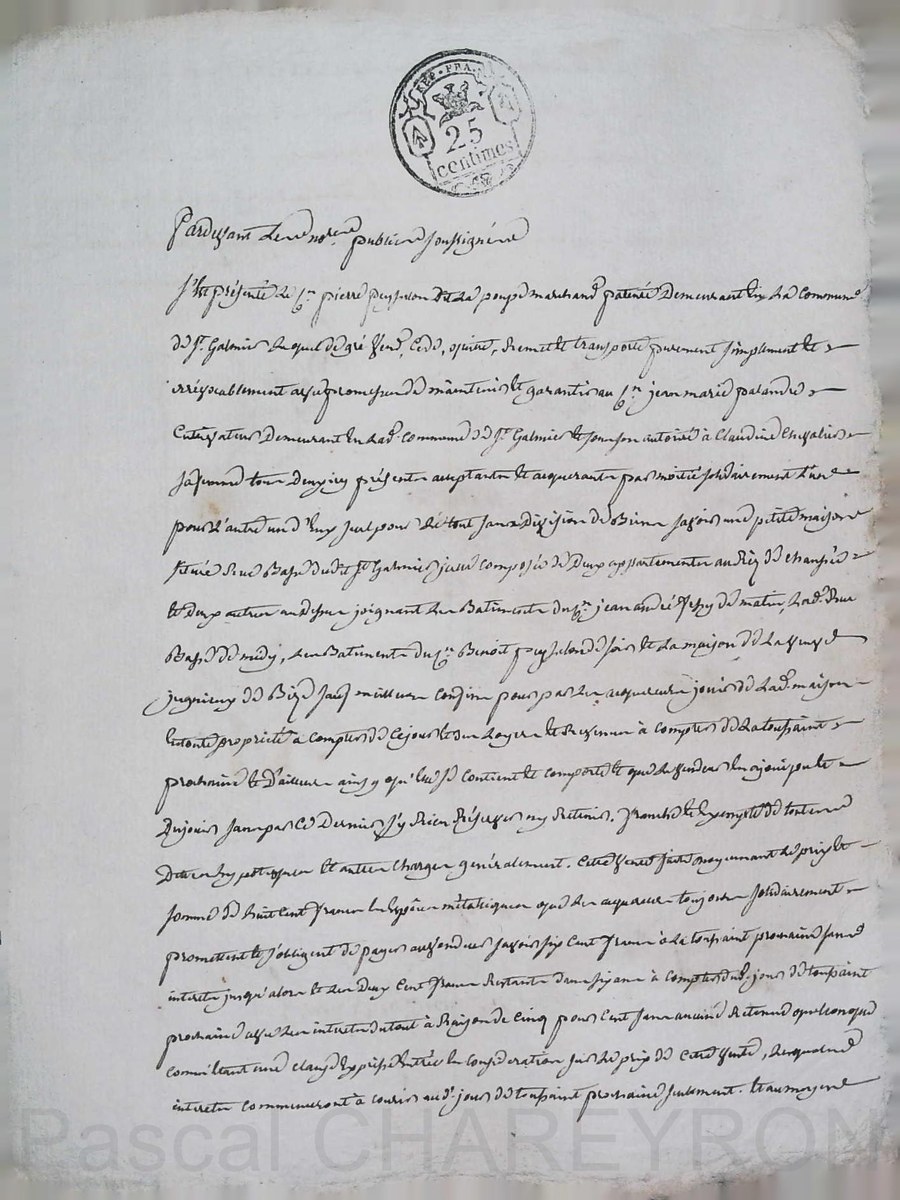 REP. FRA.
25
centimes
Pardevant Les no.res publics soussignés
S'est présenté le C.en pierre peyssson dit La poupe marchand patenté Demeurant en La Commune
de S.t Galmier Lequel de gré Vend, Cede, quitte, Remet et transporte purement simplement et
irrévocablement avec promesse de maintenir et garantir au C.en jean marie palandre
Cultivateur Demeurant en Lad. commune de S.t Galmier et de son autorité à Claudine Chevalier
sa femme tous Deux présents acceptants et acquerants par moitié solidairement L'un
pour L'autre un d'Eux seul pour Le tout sans Division de Biens savoir une petite maison
située Rue Basse dudit S.t Galmier composée de Deux appartements au Rez de chaussée
et deux autres au dessus joignant Les Batiments du C.en jean andré de matin, Lad. Rue
Basse de midy, Les Batiments du C.en Benoit peysselon de soir et La maison de La veuve
jugnieux de Bize sauf meilleurs confins pour par Les acquereurs jouir de Lad. maison
en toute propriété à compter de Ce jour et des Loyers et Revenus à compter de La toussaint
prochaine et D'ailleurs ainsy qu'elle se contient et comporte et que Le Vendeur en a joui pu et
Du jouir sans par Ce Dernier s'y Rien Réserver ny Retenir. franche et Exempte de toutes
Dettes hypotheques et autres charges généralement. Cette Vente faite moyennant Le prix et
somme de huit Cent francs En Espèces métalliques que Les acquereurs toujours solidairement
promettent et s'obligent de payer au Vendeur savoir six Cent francs à La toussaint prochaine sans
interets jusqu'alors et Les Deux Cent francs Restants dans six ans à compter dud. jour de toussaint
prochaine avec Les interets du tout à Raison de Cinq pour Cent sans aucune Retenue quelconque
comme étant une clause Expresse Entrée En Consideration sur Le prix de Cette Vente, Lesquels
interets commenceront à courir aud. jour de toussaint prochaine seulement. Et au moyen
Pascal CHAREYRON